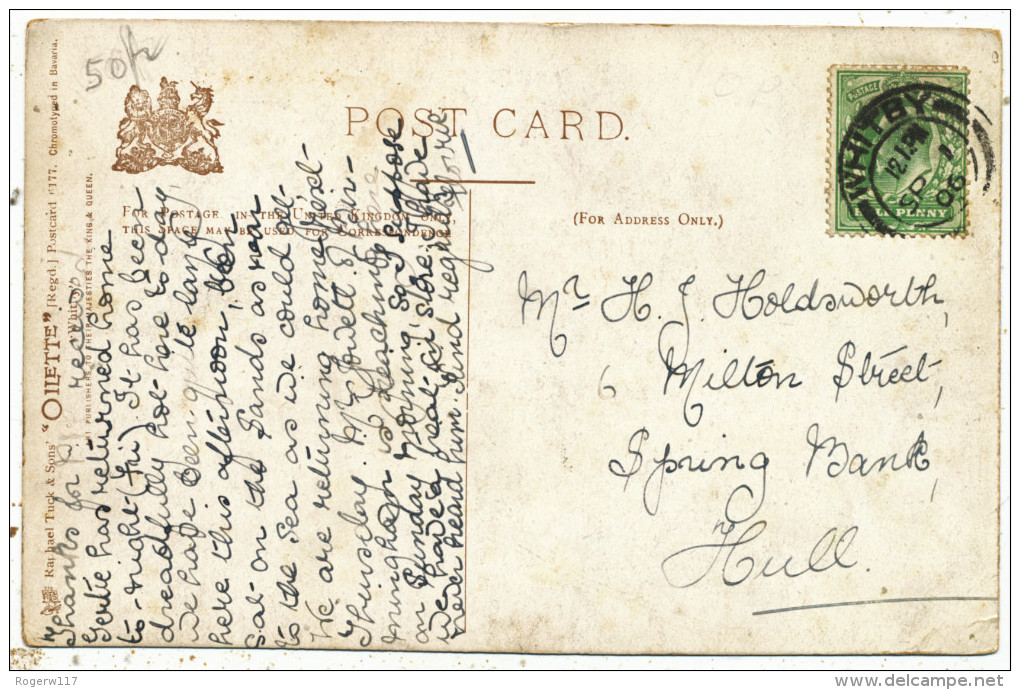 50p
POST CARD.
FOR POSTAGE IN THE UNITED KINGDOM ONLY,
THIS SPACE MAY BE USED FOR CORRESPONDENCE
(FOR ADDRESS ONLY.)
POSTAGE
PENNY
WHITBY
12.15PM
SP 1
06
Mr. H. J. Holdsworth,
6 Milton Street,
Spring Bank,
Hull.
Raphael Tuck & Sons' "OILETTE" [Regd.] Postcard 6177. Chromotyped in Bavaria.
Whitby
ART PUBLISHERS TO THEIR MAJESTIES THE KING & QUEEN.
Thanks for
Gertie has returned home
to-night (Fri). It has been
dreadfully hot here to-day,
we have been quite lazy
here this afternoon,
sat on the Sands as near
to the Sea as we could get.
We are returning home next
Thursday. Mr Jowett of Bir-
mingham is preaching here
on Sunday morning, so I suppose
we have a treat in store. I have
never heard him. Kind regards
Rogerw117
delcampe.net